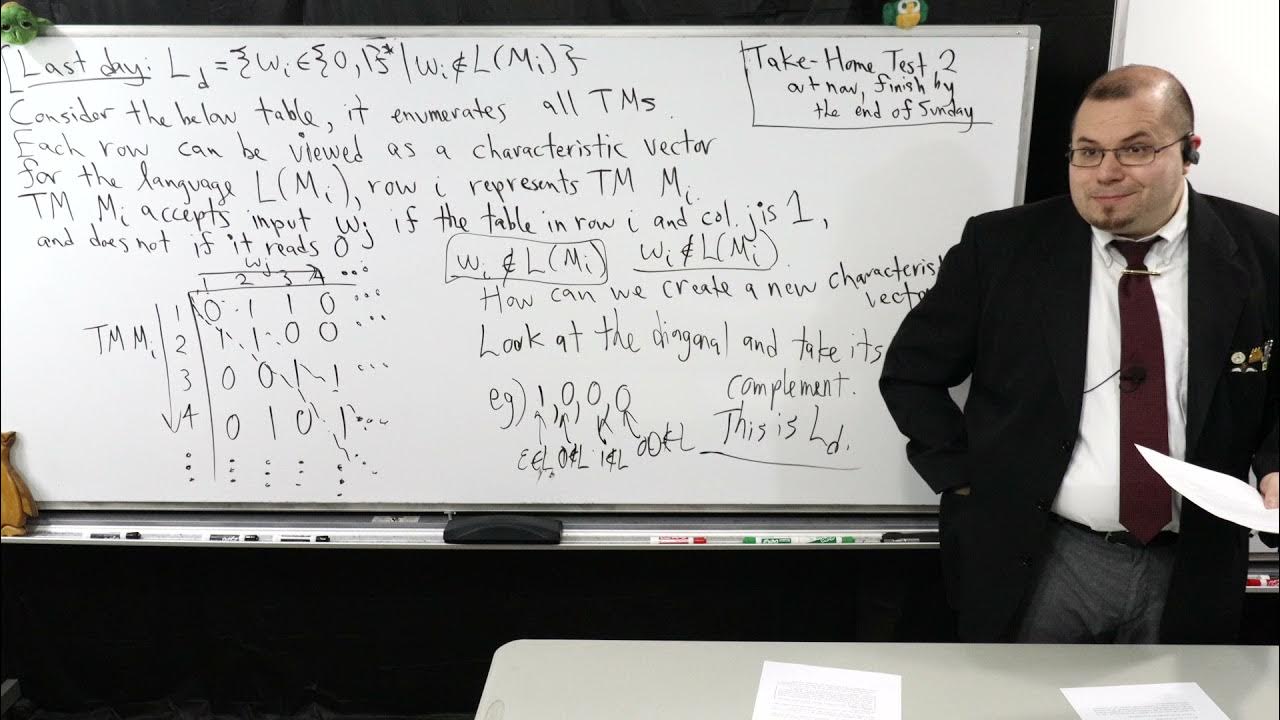 [Last day: L_d = {w_i ∈ {0,1}* | w_i ∉ L(M_i)}
Consider the below table, it enumerates all TMs.
Each row can be viewed as a characteristic vector
for the language L(M_i), row i represents TM M_i.
TM M_i accepts input w_j if the table in row i and col. j is 1,
and does not if it reads 0
Take-Home Test 2
out now, finish by
the end of Sunday
w_i ∉ L(M_i) w_i ∉ L(M_i).
How can we create a new characteris
vector
Look at the diagonal and take its
complement.
This is L_d.
w_j
1 2 3 4 ...
TM M_i
1 0 1 1 0 ...
2 1 1 0 0 ...
3 0 0 1 1 ...
4 0 1 0 1 ...
eg) 1, 0, 0, 0
ε∉L, 0∉L 1∉L 00∉L